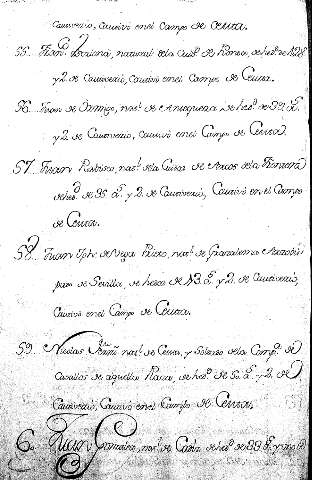 Cautiverio, Cautivo en el Campo de Ceuta.
55. Fran.co natural de la Ciu.d de Ronda, de hed.d de 28
y 2. de Cautiverio, Cautivo en el Campo de Ceuta.
56. Juan de nat.l de Antequera de hed.d de 32 a.s
y 2. de Cautiverio, Cautivo en el Campo de Ceuta
57. Juan Rubisco, nat.l de la Ciudad de Arcos de la Frontera
de hed.d de 35 a.s y 2. de Cautiverio, Cautivo en el Campo
de Ceuta.
58. Juan Jph. de Vega nat.l de Arzobis
pado de Sevilla, de hedad de 43. a.s y 2. de Cautiverio,
Cautivo en el Campo de Ceuta.
59. Nicolas nat.l de Ceuta, y Soldado de la Comp.a de
Cavallos de aquella Plaza, de hed.d de 50. a.s y 2. de
Cautiverio, Cautivo en el Campo de Ceuta.
60. Juan Gonzalez, nat.l de Cadiz de hed.d de 38 a.s y uno de